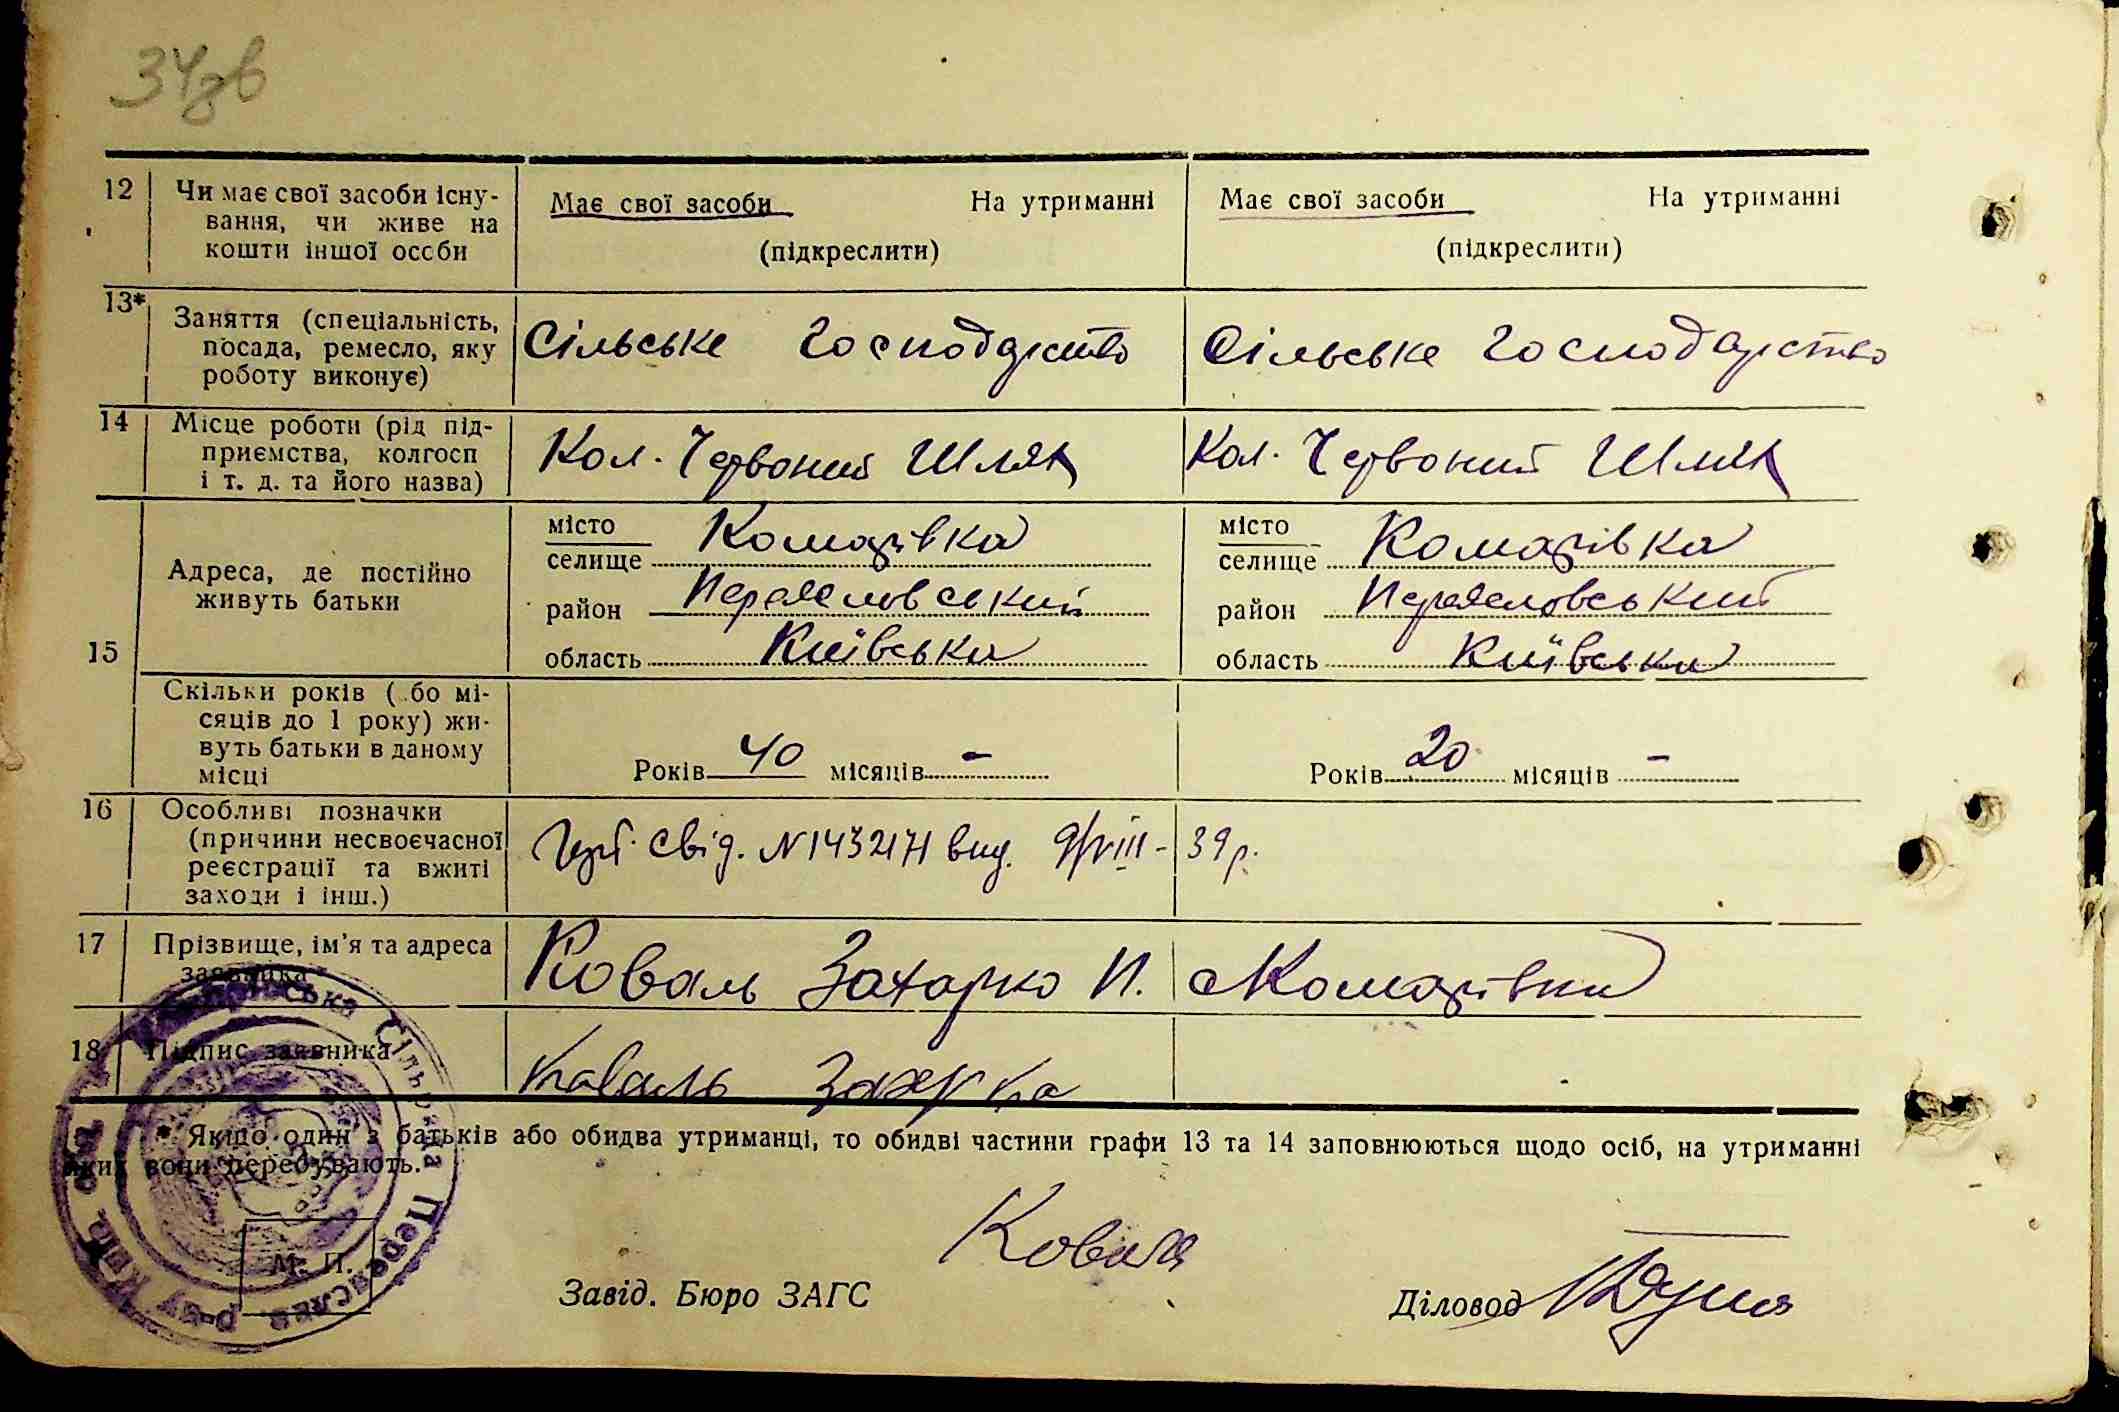 34зв
12 Чи має свої засоби існу-
вання, чи живе на
кошти іншої особи
Має свої засоби На утриманні
(підкреслити)
Має свої засоби На утриманні
(підкреслити)
13* Заняття (спеціальність,
посада, ремесло, яку
роботу виконує)
Сільське Господарство
Сільське Господарство
14 Місце роботи (рід під-
приємства, колгосп
і т. д. та його назва)
Кол. Червоний Шлях
Кол. Червоний Шлях
15 Адреса, де постійно
живуть батьки
місто
селище Комарівка
район Переяславський
область Київська
місто
селище Комарівка
район Переяславський
область Київська
Скільки років (бо мі-
сяців до 1 року) жи-
вуть батьки в даному
місці
Років 40 місяців -
Років 20 місяців -
16 Особливі позначки
(причини несвоєчасної
реєстрації та вжиті
заходи і інш.)
свід. N 1432171 вид. 9/VIII-39р.
17 Прізвище, ім'я та адреса
заявника
Коваль Захарко П. с Комарівка
18 Підпис заявника
Коваль Захарка
* Якщо один з батьків або обидва утриманці, то обидві частини графи 13 та 14 заповнюються щодо осіб, на утриманні
яких вони перебувають.
М. П.
Сільська Переяслав р-ну Київ.
Завід. Бюро ЗАГС Коваль
Діловод